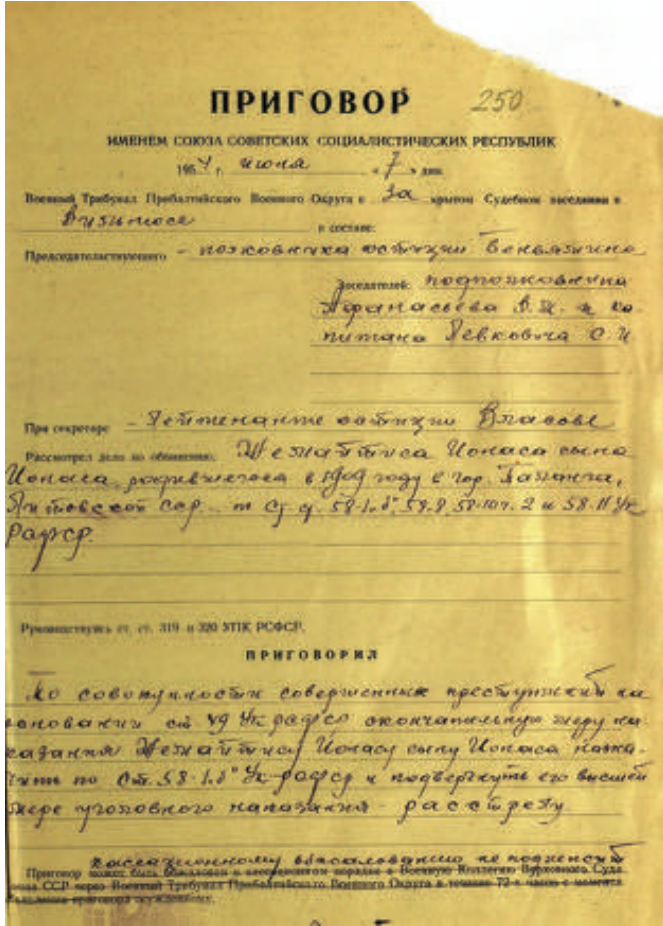 ПРИГОВОР 250
ИМЕНЕМ СОЮЗА СОВЕТСКИХ СОЦИАЛИСТИЧЕСКИХ РЕСПУБЛИК
1954 г. июня « 7 » дня
Военный Трибунал Прибалтийского Военного Округа в за крытом Судебном заседании в
Вильнюсе в составе:
Председательствующего - полковника юстиции
Заседателей: подполковника
Афанасьева В.И. и ка-
питана Левковича С.И.
При секретаре - Лейтенанте юстиции Власове
Рассмотрел дело по обвинению: Жемайтиса Йонаса сына
Йонаса, родившегося в 1909 году в гор. Паланга,
Литовской сср. по ст. ст. 58-1 „б", 58-8, 58-10 ч. 2 и 58-11 Ук
Рсфср.
Руководствуясь ст. ст. 319 и 320 УПК РСФСР,
ПРИГОВОРИЛ
По совокупности совершенных преступлений на
основании ст 49 Ук рсфср окончательную меру на-
казания Жемайтису Йонасу сыну Йонаса назна-
чить по ст. 58-1 „б" Ук рсфср и подвергнуть его высшей
мере уголовного наказания - расстрелу
кассационному обжалованию не подлежит
Приговор может быть обжалован в кассационном порядке в Военную Коллегию Верховного Суда
Союза ССР через Военный Трибунал Прибалтийского Военного Округа в течение 72-х часов с момента
приговора осужденному.